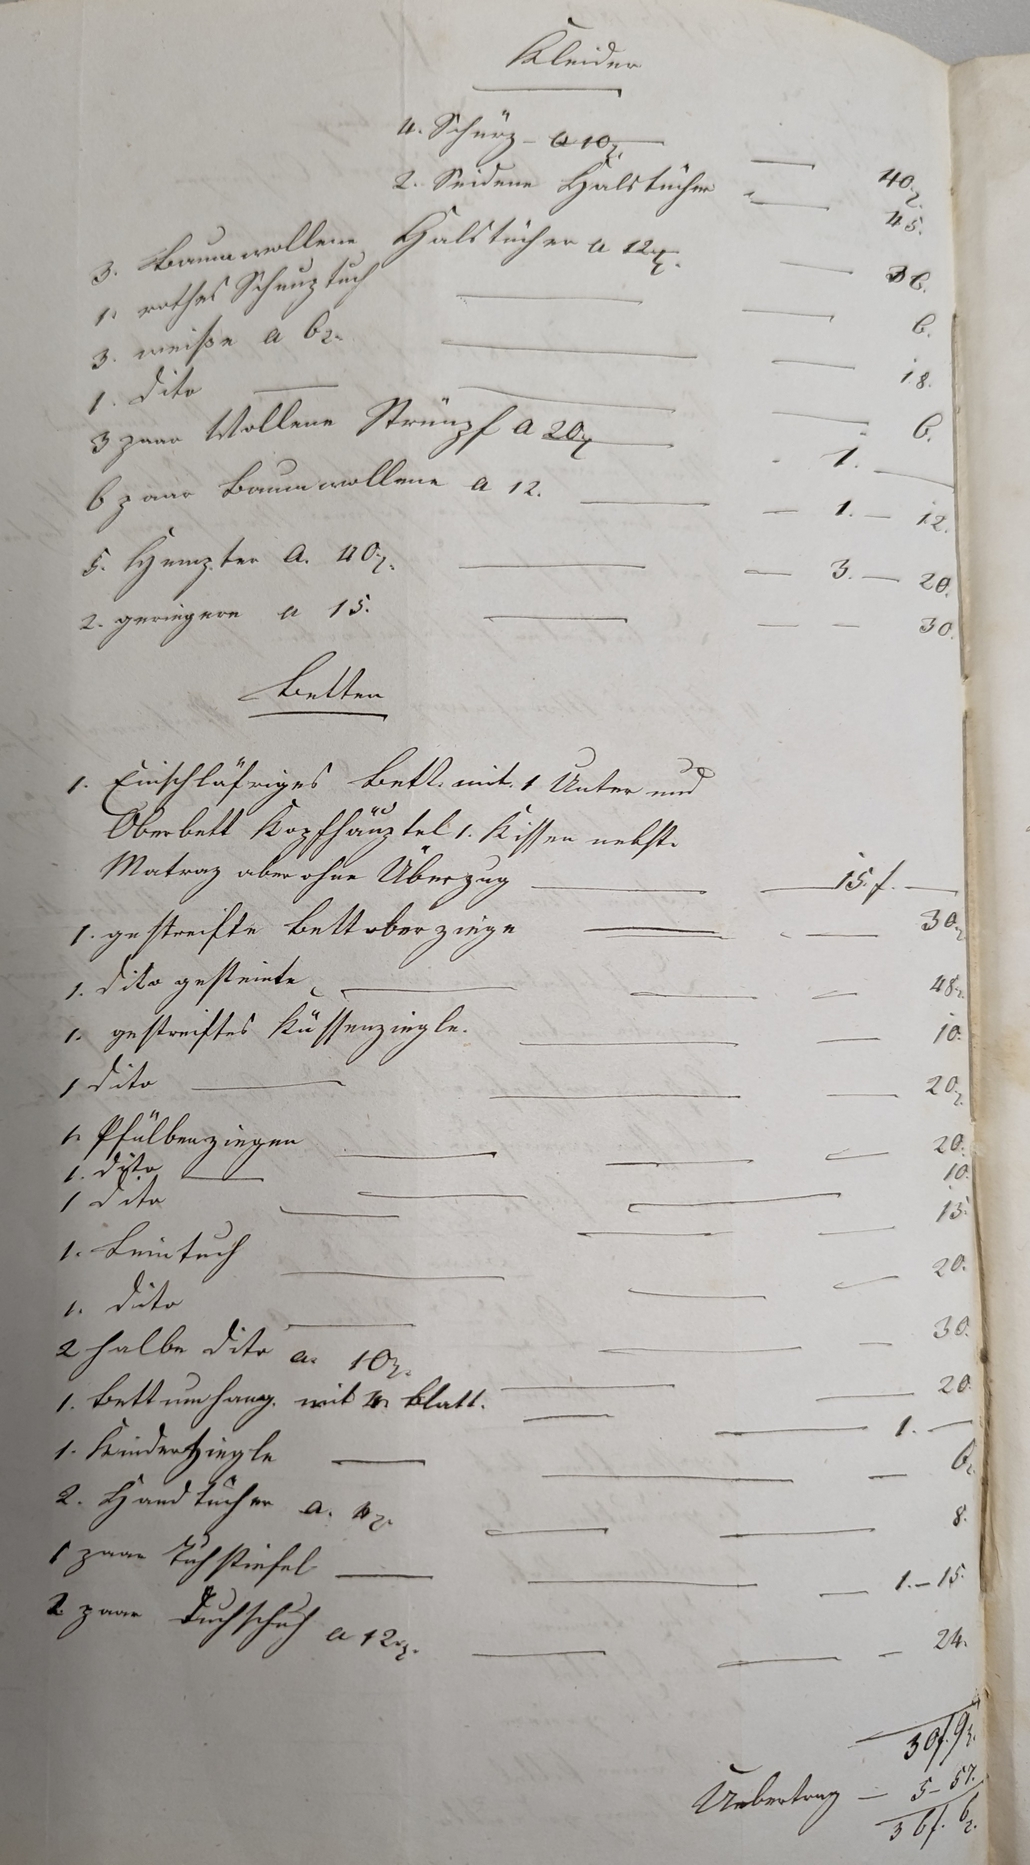 Kleider
4. Schürz - a 10x. — 40x.
2. Seidene Halstücher — 45.
3. Baumwollene Halstücher a 12x. — 36.
1. rothes Schnuptuch — 6.
3. weiße a 6x. — 18.
1. dito — 6.
3 paar Wollene Strümpf a 20x — 1. —
6 paar Baumwollene a 12. — 1. — 12.
5. Hempter a. 40x. — 3. — 20.
2. geringere a 15. — 30.
Betten
1. Einschläfriges Bett. mit. 1 Unter und
Oberbett Kopfhäuptel 1. Kissen nebst
Matraz aber ohne Überzug — 15 f. —
1. gestreifte Bettoberziege — 30x
1. dito gesteinte — 48x.
1. gestreiftes Küssenziegle. — 10.
1 dito — 20x.
1. Pfülbenziegen — 20.
1. dito — 10.
1 dito — 15.
1. Leintuch — 20.
1. dito — 30.
2 halbe dito a. 10x. — 20.
1. Bettumhang. mit 4. Blatt. — 1. —
1. Kinderziegle — 6x.
2. Handtücher a. 4x. — 8.
1 paar Tuchstiefel — 1. — 15.
2 paar Tuchschuh a 12x. — 24.
30f. 9x.
Uebertrag — 5 - 57.
36f. 6x.